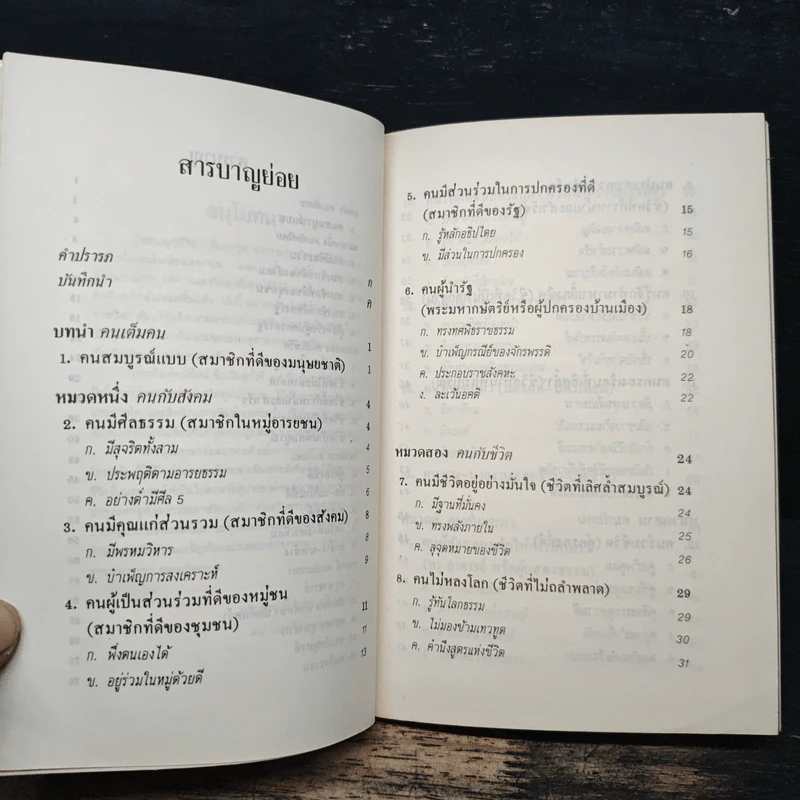 สารบาญย่อย
คำปรารภ ก
บันทึกนำ ค
บทนำ คนเต็มคน 1
1. คนสมบูรณ์แบบ (สมาชิกที่ดีของมนุษยชาติ) 1
หมวดหนึ่ง คนกับสังคม 4
2. คนมีศีลธรรม (สมาชิกในหมู่อารยชน) 4
ก. มีสุจริตทั้งสาม 4
ข. ประพฤติตามอารยธรรม 5
ค. อย่างต่ำมีศีล 5 6
3. คนมีคุณแก่ส่วนรวม (สมาชิกที่ดีของสังคม) 8
ก. มีพรหมวิหาร 8
ข. บำเพ็ญการสงเคราะห์ 9
4. คนผู้เป็นส่วนร่วมที่ดีของหมู่ชน
(สมาชิกที่ดีของชุมชน) 11
ก. พึ่งตนเองได้ 11
ข. อยู่ร่วมในหมู่ด้วยดี 13
5. คนมีส่วนร่วมในการปกครองที่ดี
(สมาชิกที่ดีของรัฐ) 15
ก. รู้หลักอธิปไตย 15
ข. มีส่วนในการปกครอง 16
6. คนผู้นำรัฐ
(พระมหากษัตริย์หรือผู้ปกครองบ้านเมือง) 18
ก. ทรงทศพิธราชธรรม 18
ข. บำเพ็ญกรณีย์ของจักรพรรดิ 20
ค. ประกอบราชสังคหะ 22
ง. ละเว้นอคติ 22
หมวดสอง คนกับชีวิต 24
7. คนมีชีวิตอยู่อย่างมั่นใจ (ชีวิตที่เลิศล้ำสมบูรณ์) 24
ก. มีฐานที่มั่นคง 24
ข. ทรงพลังภายใน 25
ค. ลุจุดหมายของชีวิต 26
8. คนไม่หลงโลก (ชีวิตที่ไม่ถลำพลาด) 29
ก. รู้ทันโลกธรรม 29
ข. ไม่มองข้ามเทวทูต 30
ค. คำนึงสูตรแห่งชีวิต 31